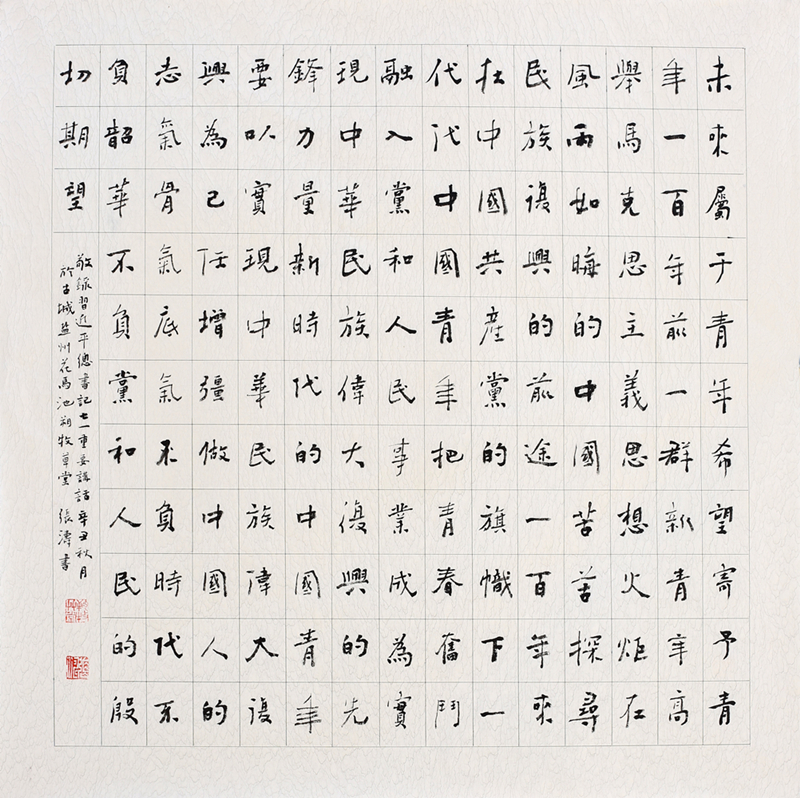 未來屬于青年希望寄予青
年一百年前一群新青年高
舉馬克思主義思想火炬在
風雨如晦的中國苦苦探尋
民族復興的前途一百年來
在中國共產黨的旗幟下一
代代中國青年把青春奮鬥
融入黨和人民事業成為實
現中華民族偉大復興的先
鋒力量新時代的中國青年
要以實現中華民族偉大復
興為己任增彊做中國人的
志氣骨氣底氣不負時代不
負韶華不負黨和人民的殷
切期望
敬錄習近平總書記七一重要講話辛丑秋月
於古城盐州花馬池朔牧草堂張濤書